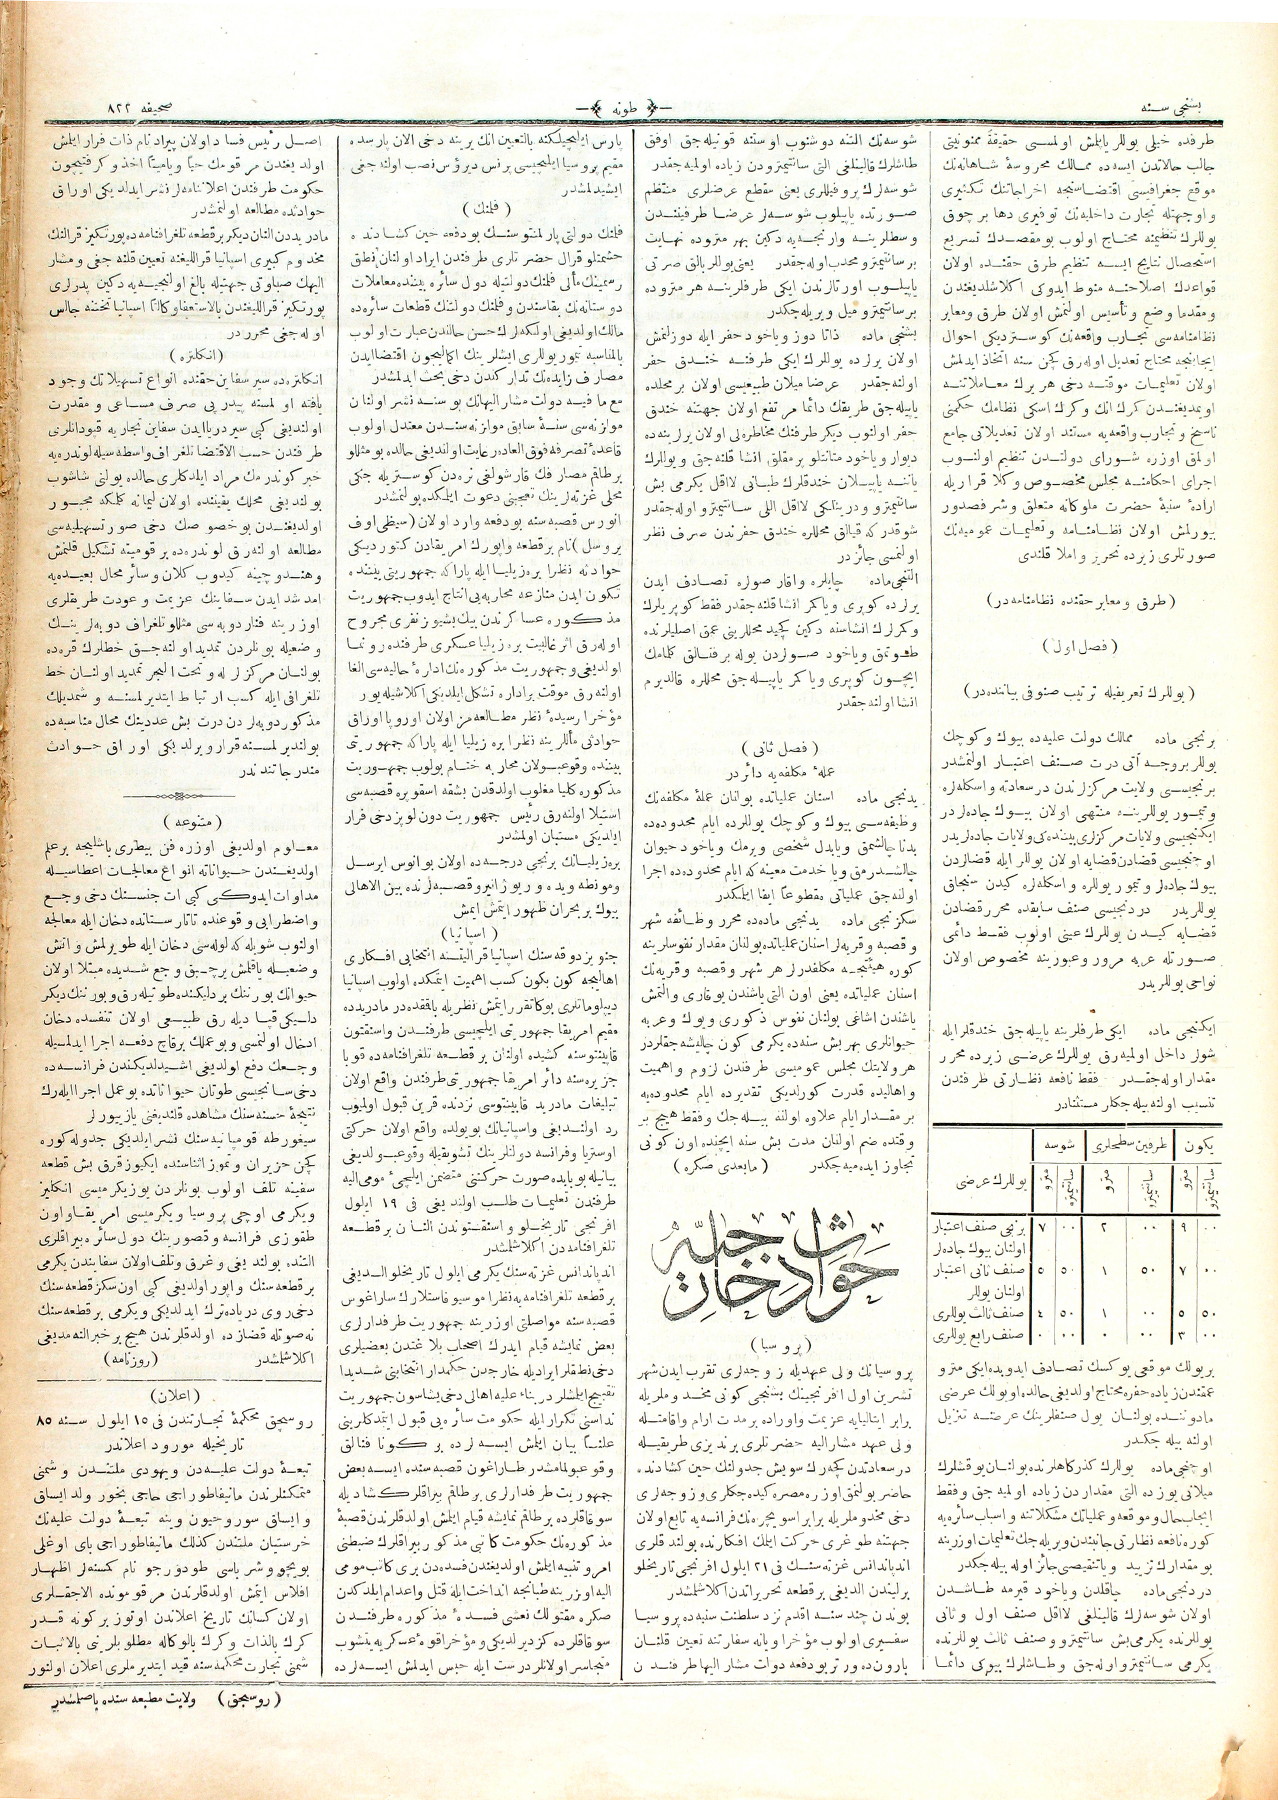 بشنجی سنه
﴿ طونه ﴾
صحیفه ٨٢٢
طرفده خیلی یوللر یاپلمش اولمسی حقیقةً ممنونیتی
جالب حالاتدن ایسه‌ده ممالك محروسهٔ شاهانه‌نك
موقع جغرافیسی اقتضاسنجه اخراجاتنك تكثیری
و اوجهتله تجارت داخلیه‌نك توفیری دها برچوق
یوللرك تنظیمنه محتاج اولوب بو مقصدك تسریع
استحصال نتایج ایسه تنظیم طرق حقنده اولان
قواعدك اصلاحنه منوط ایدوكی اكلاشلدیغندن
و مقدما وضع و تأسیس اولنمش اولان طرق ومعابر
نظامنامه‌سی تجارب واقعه‌نك كوستردیكی احوال
ایجابنجه محتاج تعدیل اوله‌رق كچن سنه اتخاذ ایدلمش
اولان تعلیمات موقته دخی هر یرك معاملاتنه
اویمدیغندن كرك انك وكرك اسكی نظامك حكمنی
ناسخ و تجارب واقعه‌یه مستند اولان تعدیلاتی جامع
اولمق اوزره شورای دولتدن تنظیم اولنوب
اجرای احكامنه مجلس مخصوص وكلا قراریله
ارادهٔ سنیهٔ حضرت ملوكانه متعلق وشرفصدور
بیورلمش اولان نظامنامه و تعلیمات عمومیه‌نك
صورتلری زیرده تحریر و املا قلندی
(طرق ومعابر حقنده نظامنامه‌در)
(فصل اول)
(یوللرك تعریفیله ترتیب صنوفی بیاننده‌در)
برنجی ماده ممالك دولت علیه‌ده بیوك وكوچك
یوللر بروجه آتی درت صنف اعتبار اولنمشدر
برنجیسی ولایت مركزلرندن درسعادته واسكله‌لره
وتیمور یوللرینه منتهی اولان بیوك جاده‌لردر
ایكنجیسی ولایات مركزلری بیننده‌كی ولایات جاده‌لریدر
اوچنجیسی قضادن قضایه اولان یوللر ایله قضالردن
بیوك جاده‌لر و تیمور یوللره و اسكله‌لره كیدن سنجاق
یوللریدر دردنجیسی صنف سابقده محرر قضادن
قضایه كیدن یوللرك عینی اولوب فقط دائمی
صورتله عربه مرور وعبورینه مخصوص اولان
نواحی یوللریدر
ایكنجی ماده ایكی طرفلرینه یاپیله‌جق خندقلر ایله
شولر داخل اولمیه‌رق یوللرك عرضی زیرده محرر
مقدار اوله‌جقدر فقط نافعه نظارتی طرفندن
تنسیب اولنه بیله‌جكلر مستثنادر
یوللرك عرضی
شوسه
طرفین سطحلری
یكون
مترو
سانتیمترو
مترو
سانتیمترو
مترو
سانتیمترو
برنجی صنف اعتبار اولنان بیوك جاده‌لر ٧ ٠٠ ٢ ٠٠ ٩ ٠٠
صنف ثانی اعتبار اولنان یوللر ٥ ٥٠ ١ ٥٠ ٧ ٠٠
صنف ثالث یوللری ٤ ٥٠ ١ ٠٠ ٥ ٥٠
صنف رابع یوللری ٠ ٠٠ ٠ ٠٠ ٣ ٠٠
بر یولك موقعی یوكسك تصادف ایدوبده ایكی مترو
عمقندن زیاده حفره محتاج اولدیغی حالده او یولك عرضی
مادوننده بولنان یول صنفلرینك عرضنه تنزیل
اولنه بیله‌جكدر
اوچنجی ماده یوللرك كذركاهلرنده بولنان یوقشلرك
میلانی یوزده التی مقداردن زیاده اولمیه‌جق وفقط
ایجاب حال وموقعه وعملیاتك مشكلاتنه و اسباب سائره‌یه
كوره نافعه نظارتی جانبندن ویریله‌جك تعلیمات اوزرینه
بو مقدارك تزید و یاتنقیصی جائز اوله بیله‌جكدر
دردنجی ماده چاقلدن ویاخود قیرمه طاشدن
اولان شوسه‌لرك قالینلغی لااقل صنف اول و ثانی
یوللرنده یكرمی‌بش سانتیمترو و صنف ثالث یوللرنده
یكرمی سانتیمترو اوله‌جق و طاشلرك بیوكی دائما
شوسه‌نك التنه دوشنوب اوستنه قونیله‌جق اوفق
طاشلرك قالینلغی التی سانتیمترودن زیاده اولمیه‌جقدر
شوسه‌لرك پروفیللری یعنی مقطع عرضلری منتظم
صورتده یاپیلوب شوسه‌لر عرضا طرفیندن
وسطلرینه وارنجه‌یه دكین بهر متروده نهایت
بر سانتیمترو محدب اوله‌جقدر یعنی یوللر بالق صرتی
یاپیلوب اورتالرندن ایكی طرفلرینه هر متروده
بر سانتیمترو میل ویریله‌جكدر
بشنجی ماده ذاتا دوز ویاخود حفر ایله دوزلنمش
اولان یرلرده یوللرك ایكی طرفنه خندق حفر
اولنه‌جقدر عرضا میلان طبیعیسی اولان بر محلده
یاپیله‌جق طریقك دائما مرتفع اولان جهتنه خندق
حفر اولنوب دیكر طرفنك مخاطره‌لی اولان یرلرینه‌ده
دیوار ویاخود متانتلو پرمقلق انشا قلنه‌جق ویوللرك
یاننه یاپیلان خندقلرك طبانی لااقل یكرمی بش
سانتیمترو و درینلكی لااقل اللی سانتیمترو اوله‌جقدر
شوقدر كه قیالق محللره خندق حفرندن صرف نظر
اولنمسی جائزدر
التنجی ماده چایلره واقار صولره تصادف ایدن
یرلرده كوپری ویاكمر انشا قلنه‌جقدر فقط كوپریلرك
وكمرلرك انشاسنه دكین كچید محللرینی عمق اصلیلرنده
طوتمق ویاخود صولردن بوله بر فنالق كلمامك
ایچون كوپری ویا كمر یاپیله‌جق محللره قالدیرم
انشا اولنه‌جقدر
(فصل ثانی)
عملهٔ مكلفه‌یه دائردر
یدنجی ماده اسنان عملیاتده بولنان عملهٔ مكلفه‌نك
وظیفه‌سی بیوك وكوچك یوللرده ایام محدوده‌ده
بدنا چالشمق ویابدل شخصی ویرمك ویاخود حیوان
چالشدرمق ویا خدمت معینه‌كه ایام محدوده‌ده اجرا
اولنه‌جق عملیاتی مقطوعاً ایفا ایلمكدر
سكزنجی ماده یدنجی ماده‌ده محرر وظائفه شهر
و قصبه وقریه‌لر اسنان عملیاتده بولنان مقدار نفوسلرینه
كوره هیئتجه مكلفدرلر هر شهر وقصبه وقریه‌نك
اسنان عملیاتده یعنی اون التی یاشندن یوقاری والتمش
یاشندن اشاغی بولنان نفوس ذكوری ویوك وعربه
حیوانلری بهر بش سنه‌ده یكرمی كون چالیشه‌جقلردر
هر ولایتك مجلس عمومیسی طرفندن لزوم و اهمیت
و اهالیده قدرت كورلدیكی تقدیرده ایام محدوده‌یه
بر مقدار ایام علاوه اولنه بیله‌جك وفقط هیچ بر
وقتده ضم اولنان مدت بش سنه ایچنده اون كونی
تجاوز ایده‌میه‌جكدر (مابعدی صكره)
حوادث خارجیه
(پروسیا)
پروسیانك ولی عهدیله زوجه‌لری تقرب ایدن شهر
تشرین اول افرنجینك بشنجی كونی مخدوملریله
برابر ایتالیایه عزیمت واوراده برمدت ارام واقامتله
ولی عهد مشار الیه حضرتلری برندیزی طریقیله
درسعادتدن كچه‌رك سویش جدولنك حین كشادنده
حاضر بولنمق اوزره مصره كیده‌جكلری وزوجه‌لری
دخی مخدوملریله برابر اسویچره‌نك فرانسه‌یه تابع اولان
جهتنه طوغری حركت ایلمك افكارنده بولندقلری
اندپاندانس غزته‌سنك فی ٢١ ایلول افرنجی تاریخلو
برلیندن الدیغی بر قطعه تحریراتدن اكلاشلمشدر
بوندن چند سنه اقدم نزد سلطنت سنیه‌ده پروسیا
سفیری اولوب مؤخرا ویانه سفارتنه تعیین قلنان
بارون‌ده ورتر بودفعه دولت مشار الیها طرفندن
پارس ایلچیلكنه بالتعیین انك یرینه دخی الان پارسده
مقیم پروسیا ایلچیسی پرنس‌دیرؤس نصب اولنه‌جغی
ایشیدلمشدر
(فلمنك)
فلمنك دولتی پارلمنتوسنك بودفعه حین كشادنده
حشمتلو قرال حضرتلری طرفندن ایراد اولنان نطق
رسمینك مألی فلمنك دولتیله دول سائره بیننده معاملات
دوستانه‌نك بقاسندن و فلمنك دولتنك قطعات سائره‌ده
مالك اولدیغی اولكه‌لرك حسن حالندن عبارت اولوب
بالمناسبه تیموریوللری ایشلرینك اكمالیچون اقتضا ایدن
مصارف زایده‌نك تداركندن دخی بحث ایدلمشدر
مع مافیه دولت مشار الیهانك بوسنه نشر اولنان
موازنه‌سی سنهٔ سابق موازنه‌سندن معتدل اولوب
قاعدهٔ تصرفه فوق العاده رعایت اولندیغی حالده بو مثللو
بر طاقم مصارفك قارشولغی نره‌دن كوستریله‌جكی
محلی غزته‌لرینك تعجبنی دعوت ایلمكده بولنمشدر
انورس قصبه‌سنه بودفعه وارد اولان (سیظی اوف
بروسل) نام بر قطعه واپورك امریقادن كتوردیكی
حوادثه نظرا برزیلیا ایله پاراكه جمهوریتی بیننده
تكون ایدن منازعه محاربه‌یی انتاج ایدوب جمهوریت
مذكوره عساكرندن بیك بشیوز نفری مجروح
اوله‌رق اثر غالبیت برزیلیا عسكری طرفنده رونما
اولدیغی وجمهوریت مذكوره‌نك ادارهٔ حالیه‌سی الغا
اولنه‌رق موقت بر اداره تشكل ایلدیكی اكلاشیله‌یور
مؤخرا رسیدهٔ نظر مطالعه‌مز اولان اوروپا اوراق
حوادثی مأللرینه نظرا برزیلیا ایله پاراكه جمهوریتی
بیننده وقوعبولان محاربه ختام بولوب جمهوریت
مذكوره كلیا مغلوب اولدقدن بشقه اسقوبره قصبه‌سی
استیلا اولنه‌رق رئیس جمهوریت دون لوپز دخی فرار
ایلدیكی مستبان اولمشدر
برزیلیانك برنجی درجه‌ده اولان بوانوس ایرسل
ومونطه‌ویده و ریوژانیرو قصبه‌لرنده بین الاهالی
بیوك بر بحران ظهور ایتمش ایمش
(اسپانیا)
جنویز دوقه‌سنك اسپانیا قرالیتنه انتخابی افكاری
اهالیجه كون بكون كسب اهمیت ایتمكده اولوب اسپانیا
دیپلوماتلری بوكا تقرر ایتمش نظریله باقمقده در مادریدده
مقیم امریقا جمهوریتی ایلچیسی طرفندن واسنقتون
قابینتوسنه كشیده اولنان بر قطعه تلغرافنامه‌ده قوبا
جزیره‌سنه دائر امریقا جمهوریتی طرفندن واقع اولان
تبلیغات مادرید قابینتوسی نزدنده قرین قبول اولمیوب
رد اولندیغی واسپانیانك بویولده واقع اولان حركتی
اوستریا وفرانسه دولتلرینك تشویقیله وقوعبولدیغی
بیانیله بوبابده صورت حركتنی متضمن ایلچیٔ مومی الیه
طرفندن تعلیمات طلب اولندیغی فی ١٩ ایلول
افرنجی تاریخلو و اسنقتوندن النان بر قطعه
تلغرافنامه‌دن اكلاشلمشدر
اندپاندانس غزته‌سنك یكرمی ایلول تاریخلو الدیغی
بر قطعه تلغرافنامه‌یه نظرا موسیو قاستلارك ساراغوس
قصبه‌سنه مواصلتی اوزرینه جمهوریت طرفدارلری
بعض نمایشه قیام ایدرك اصحاب بلاغتدن بعضیلری
دخی نطقلر ایرادیله خارجدن حكمدار انتخابنی شدیدا
تقبیح ایلمشلردر بناء علیه اهالی دخی یشاسون جمهوریت
نداسنی تكرار ایله حكومت سائره‌یی قبول ایتمدكلرینی
علناً بیان ایلمش ایسه‌لرده بر كونا فنالق
وقوعبولمامشدر طاراغون قصبه‌سنده ایسه بعض
جمهوریت طرفدارلری بر طاقم بیراقلرك كشادیله
سوقاقلرده بر طاقم نمایشه قیام ایلمش اولدقلرندن قصبهٔ
مذكوره‌نك حكومت كاتبی مذكور بیراقلرك ضبطنی
امر و تنبیه ایلمش اولدیغندن فسده‌دن بری كاتب مومی
الیه اوزرینه طبانجه انداخت ایله قتل واعدام ایلدكدن
صكره مقتولك نعشی فسدهٔ مذكوره طرفندن
سوقاقلرده كزدیرلدیكی و مؤخرا قوهٔ عسكریه یتشوب
متجاسر اولانلر درست ایله حبس ایدلمش ایسه‌لرده
اصل رئیس فساد اولان پیراد نام ذات فرار ایلمش
اولدیغندن مرقومك حیاً ویامیتاً اخذ وكرفتیچون
حكومت طرفندن اعلاننامه‌لر نشر ایدلدیكی اوراق
حوادثده مطالعه اولنمشدر
مادریددن النان دیكر بر قطعه تلغرافنامه‌ده پورتكیز قرالنك
مخدوم كبیری اسپانیا قرالیتنه تعیین قلنه‌جغی ومشار
الیهك صباوتی جهتیله بالغ اولنجیه‌یه دكین پدرلری
پورتكیز قراللیغندن بالاستعفا وكالةً اسپانیا تختنه جالس
اوله‌جغی محرردر
(انكلتره)
انكلتره‌ده سیر سفاین حقنده انواع تسهیلاتك وجود
یافته اولمسنه پیدرپی صرف مساعی و مقدرت
اولندیغی كبی سیر دریا ایدن سفاین تجاریه قپودانلری
طرفندن حسب الاقتضا تلغراف واسطه‌سیله لوندره‌یه
خبر كوندرمك مراد ایلدكلری حالده یولنی شاشوب
بولندیغی محلك یقیننده اولان لیمانه كلمكه مجبور
اولدیغندن بو خصوصك دخی صور تسهیلیه‌سی
مطالعه اولنه‌رق لوندره‌ده بر قومیته تشكیل قلنمش
و هند و چینه كیدوب كلان و سائر محال بعیده‌یه
امدشد ایدن سفاینك عزیمت و عودت طریقلری
اوزرینه فنار دوبه‌سی مثللو تلغراف دوبه‌لرینك
وضعیله بونلردن تمدید اولنه‌جق خطلرك قره‌ده
بولنان مركزلره و تحت البحر تمدید اولنان خط
تلغرافی ایله كسب ارتباط ایتدیرلمسنه و شمدیلك
مذكور دوبه‌لردن درت بش عددینك محال مناسبه‌ده
بولندیرلمسنه قرار ویرلدیكی اوراق حوادث
مندرجاتندندر
(متنوعه)
معلوم اولدیغی اوزره فن بیطری باشلیجه بر علم
اولدیغندن حیواناته انواع معالجات اعطاسیله
مداوات ایدوكی كبی ات جنسنك دخی وجع
واضطرابی وقوعنده تاتارستانده دخان ایله معالجه
اولنوب شویله كه لوله‌سی دخان ایله طویرلمش وانش
وضعیله یاقلمش بر چبق وجع شدیده مبتلا اولان
حیوانك بورننك بر دلیكنده طوتیله‌رق وبورننك دیكر
دلیكی قپادیله‌رق طبیعی اولان تنفسده دخان
ادخال اولنمسی و بو عملك بر قاچ دفعه اجرا ایدلمسیله
وجعك دفع اولدیغی اشیدلدیكندن فرانسه‌ده
دخی سانجیسی طوتان حیواناتده بو عمل اجرا ایله‌رك
نتیجهٔ حسنه‌سنك مشاهده قلندیغی یازییورلر
سیغورطه قومپانیه‌سنك نشر ایلدیكی جدوله كوره
كچن حزیران و تموز اثناسنده ایكیوز قرق بش قطعه
سفینه تلف اولوب بونلردن یوز یكرمیسی انكلیز
ویكرمی اوچی پروسیا ویكرمیسی امریقا و اون
طقوزی فرانسه و قصورینك دول سائره بیراقلری
التنده بولندیغی وغرق وتلف اولان سفایندن یكرمی
بر قطعه‌سنك واپور اولدیغی كبی اون سكز قطعه‌سنك
دخی روی دریاده ترك ایدلدیكی ویكرمی بر قطعه‌سنك
نه صورتله قضازده اولدقلرندن هیچ بر خبر النه‌مدیغی
اكلاشلمشدر (روزنامه)
(اعلان)
روسجق محكمهٔ تجارتندن فی ١٥ ایلول سنه ٨٥
تاریخیله مورود اعلاندر
تبعهٔ دولت علیه‌دن ویهودی ملتندن و شمنی
متمكنلرندن مانیفاطوراجی حاجی بخور ولد ایساق
و ایساق سوروحیون وینه تبعهٔ دولت علیه‌نك
خرستیان ملتندن كذلك مانیفاطوراجی بای اوغلی
بویجو وشریاسی طودورجو نام كمسنه‌لر اظهار
افلاس ایتمش اولدقلرندن مرقومونده الاجقلری
اولان كسانك تاریخ اعلاندن اوتوز بر كونه قدر
كرك بالذات وكرك بالوكاله مطلوبلرینی بالاثبات
شمنی تجارت محكمه‌سنه قید ایتدیرملری اعلان اولنور
(روسجق) ولایت مطبعه‌سنده باصلمشدر